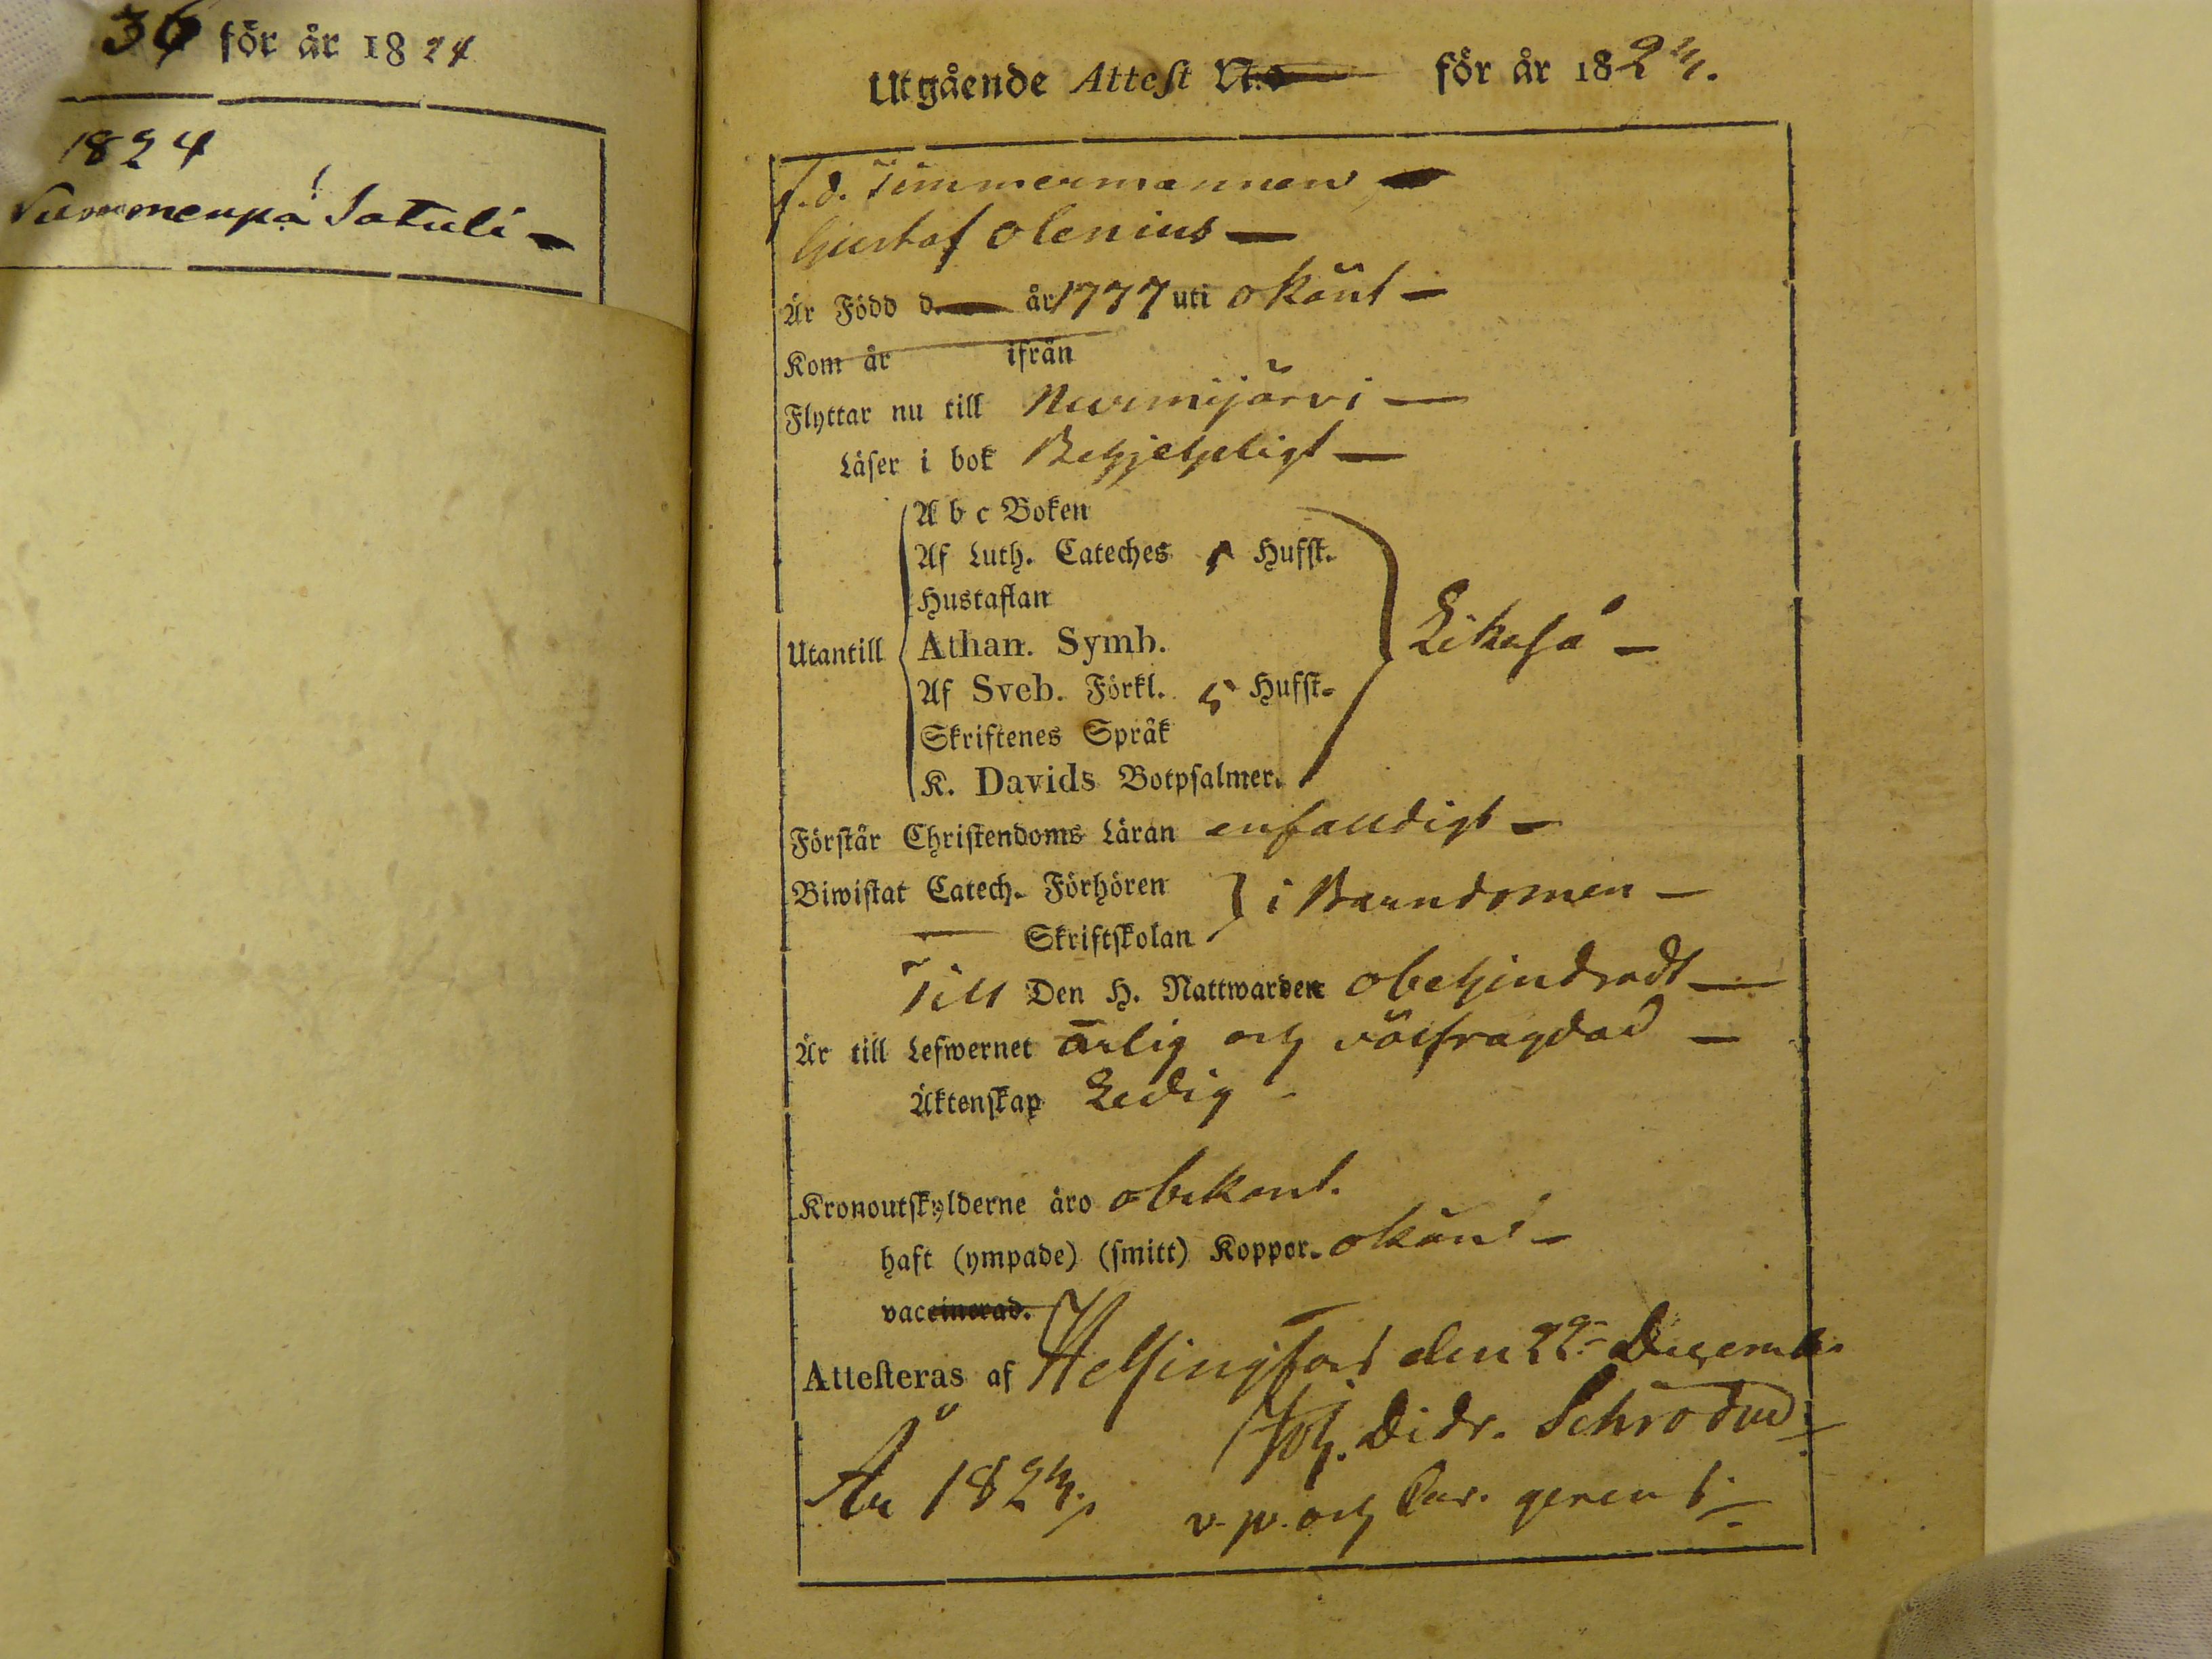 36 för år 1824
1824
Nummenpä Satuli –
Utgående Attest N:o för år 1824.
f.d. Timmermannen –
Gustaf Olenius –
Är Född d. — år 1777 uti okänt –
Kom år ifrån
Flyttar nu till Nurmijärvi –
Läser i bok Behjelpeligt –
A b c Boken
Af Luth. Cateches 5 Hufst.
Hustaflan
Utantill Athan. Symb. Likaså –
Af Sveb. Förkl. 5 Hufst.
Skriftenes Språk
K. Davids Botpsalmer.
Förstår Christendoms Läran enfalldigt –
Biwistat Catech. Förhören } i Barndomen –
— Skriftskolan
Till Den H. Nattwarden obehindradt –
Är till Lefwernet ärlig och välfrägdad –
Äktenskap Ledig –
Kronoutskylderne äro obekant.
haft (ympade) (smitt) Koppor. okänt –
vaccinerad.
Attesteras af Helsingfors den 22 December
År 1824. Joh. Didr. Schröder
v. p. och Cur. gerens.